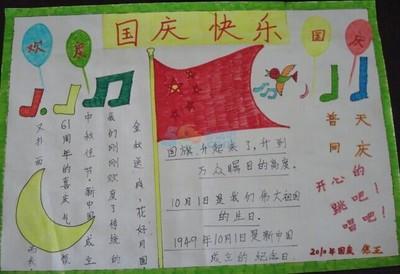 国庆快乐
欢度
国庆
金秋送爽,花好月圆
我们刚刚欢度了传统的
中秋佳节,新中国成立
61周年的喜庆
又扑面
国旗升起来了,升到
万众瞩目的高度。
10月1日是我们伟大祖国
的生日。
1949年10月1日是新中国
成立的纪念日
普天
同庆
开心的
跳吧!
唱吧!
2010年国庆